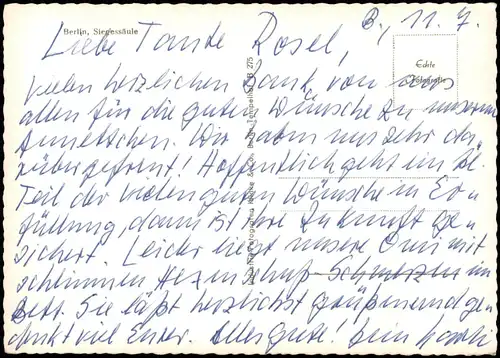 Berlin, Siegessäule
B., 11. 7.
Liebe Tante Rosel,
Echte
Fotografie
vielen herzlichen Dank von uns
allen für die guten Wünsche zu unserem
Wir haben uns sehr da-
rüber gefreut! Hoffentlich geht ein kl.
Teil der vielen guten Wünsche in Er-
füllung, dann ist ihre Zukunft ge-
sichert. Leider liegt unsere Omi mit
schlimmen Hexenschuß-Schmerzen im
Bett. Sie läßt herzlichst grüßen und ge-
denkt viel Eurer. Alles gute! Dein